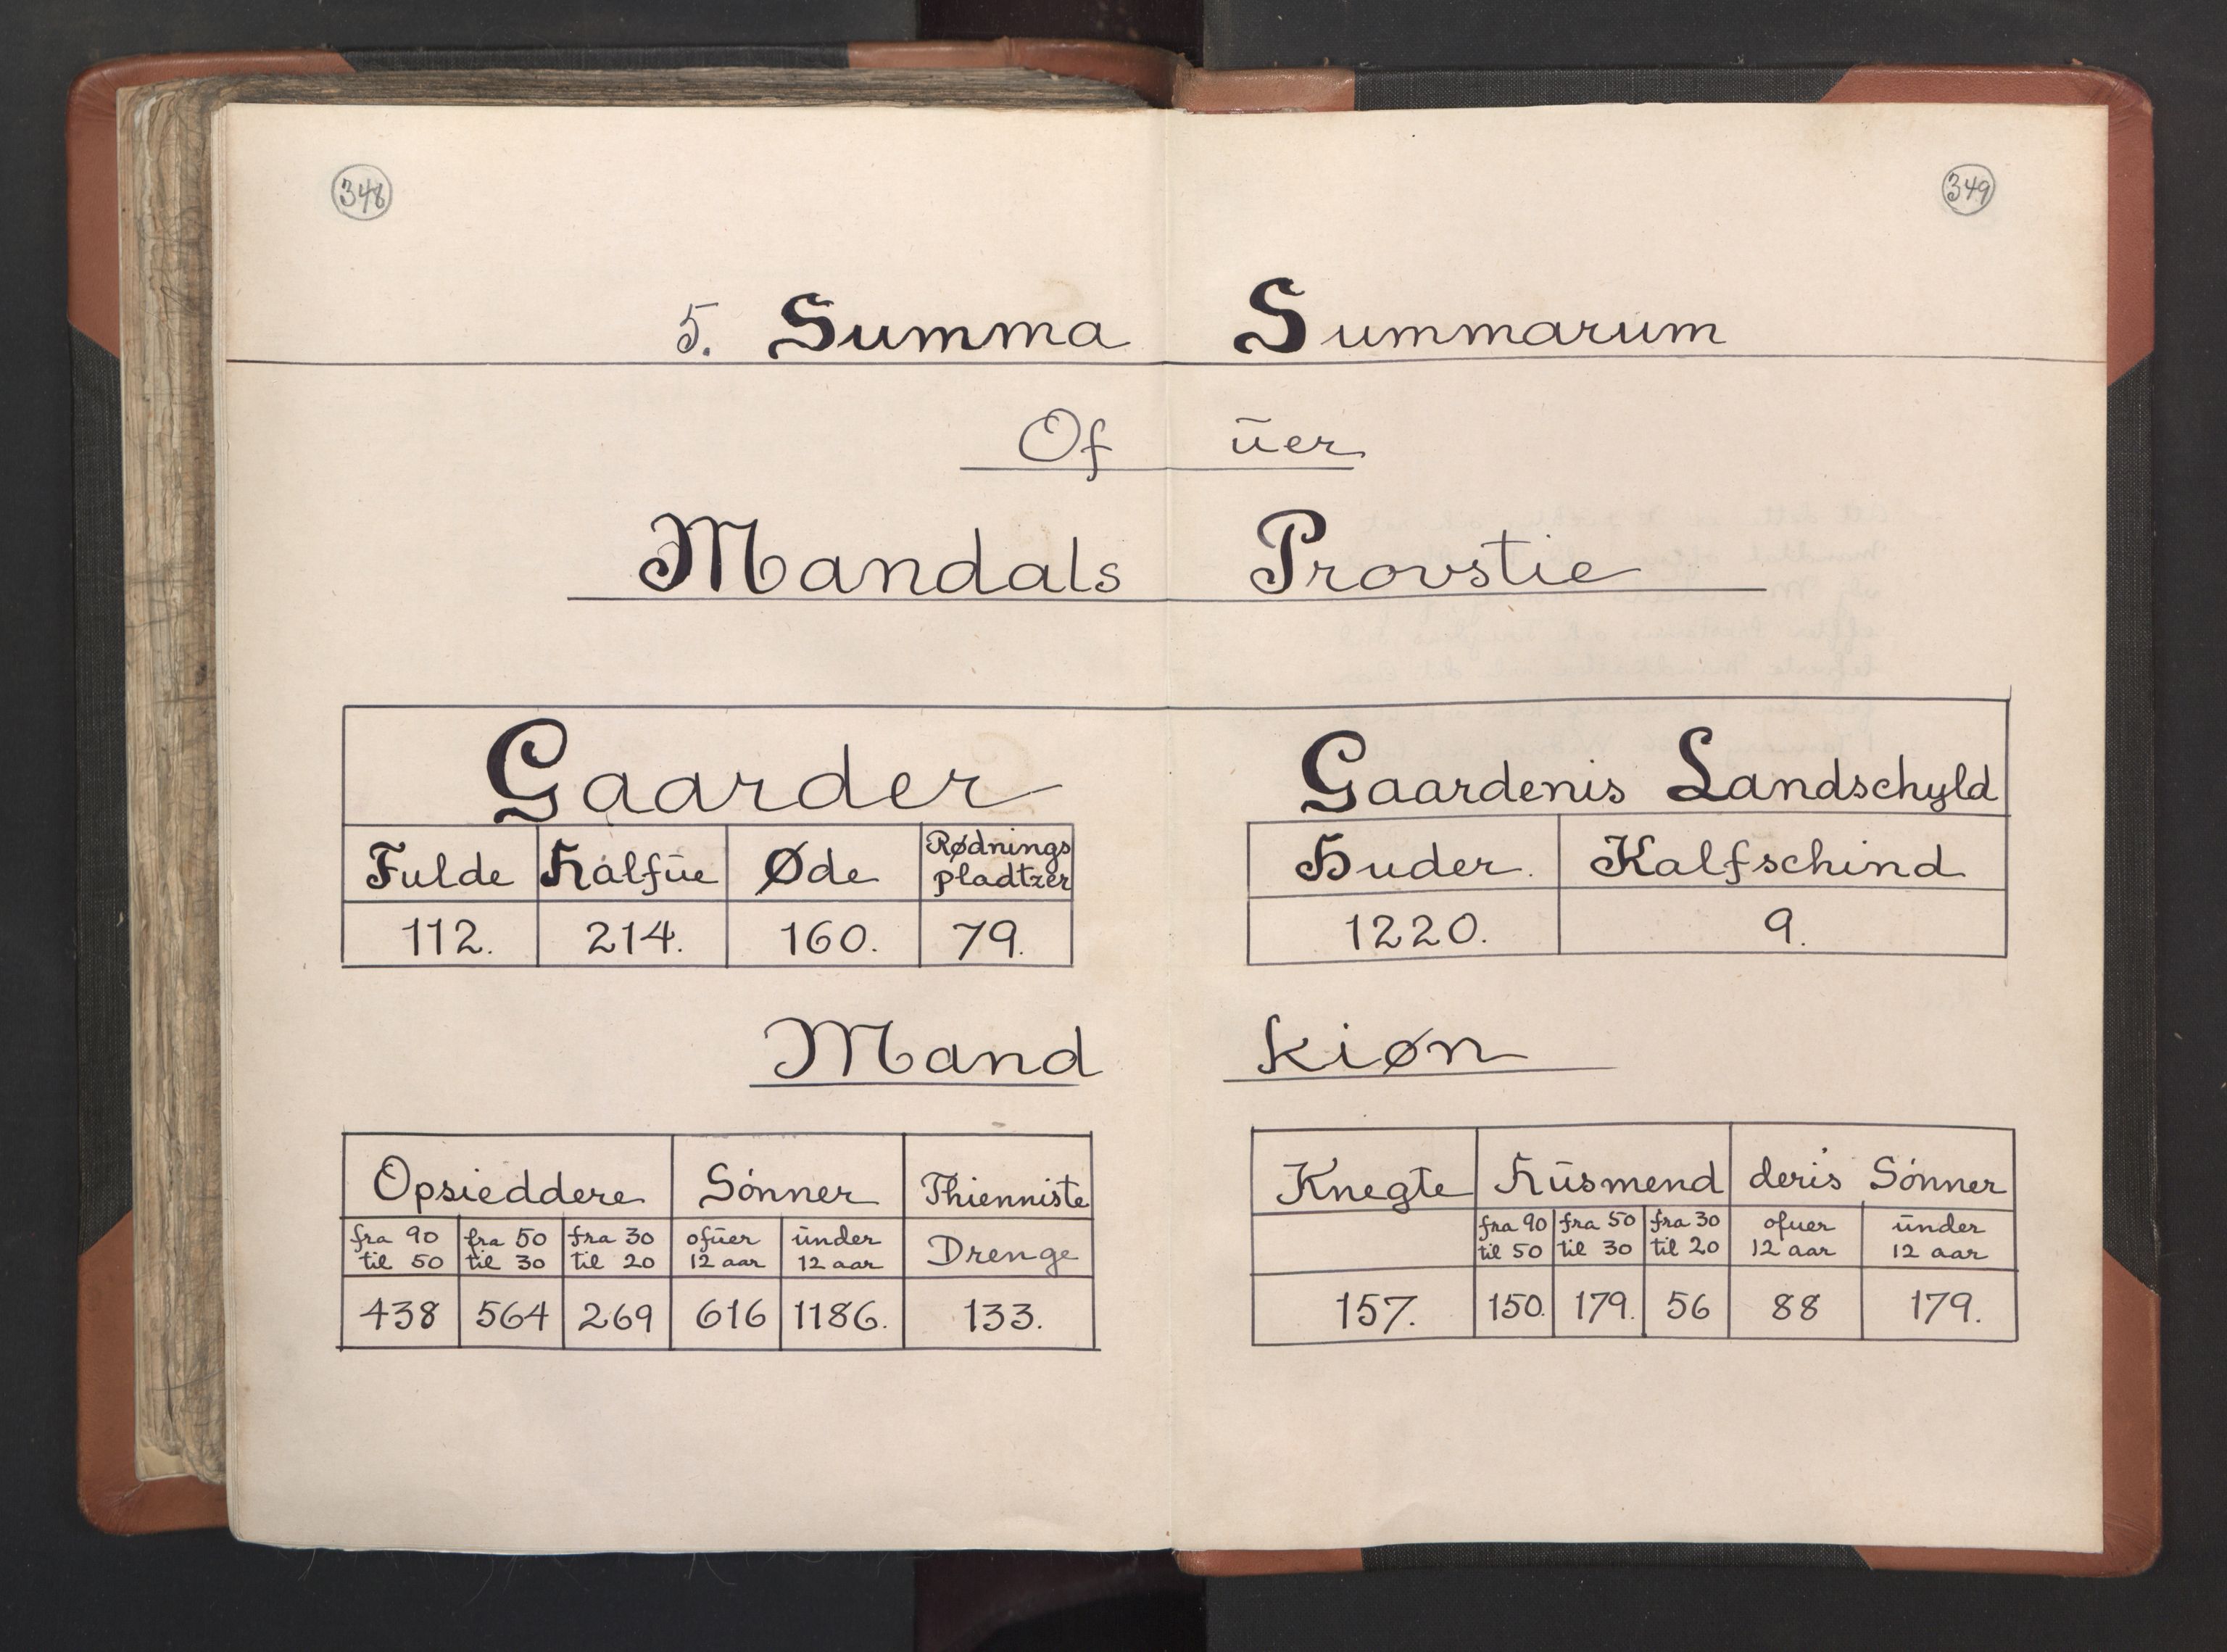 348
349
5. Summa Summarum
Of ūer
Mandals Provstie
Gaarder
Gaardenis Landschyld
Fulde Halfūe Øde Rødnings pladtzer
Huder. Kalfschind
112. 214. 160. 79.
1220. 9.
Mand kiøn
Opsieddere Sónner Thienniste
Knegte Hūsmend deris Sónner
fra 90 fra 50 fra 30 ofūer ūnder Drenge
til 50 til 30 til 20 12 aar 12 aar
fra 90 fra 50 fra 30 ofuer ūnder
til 50 til 30 til 20 12 aar 12 aar
438 564 269 616 1186. 133.
157. 150. 179. 56 88 179.